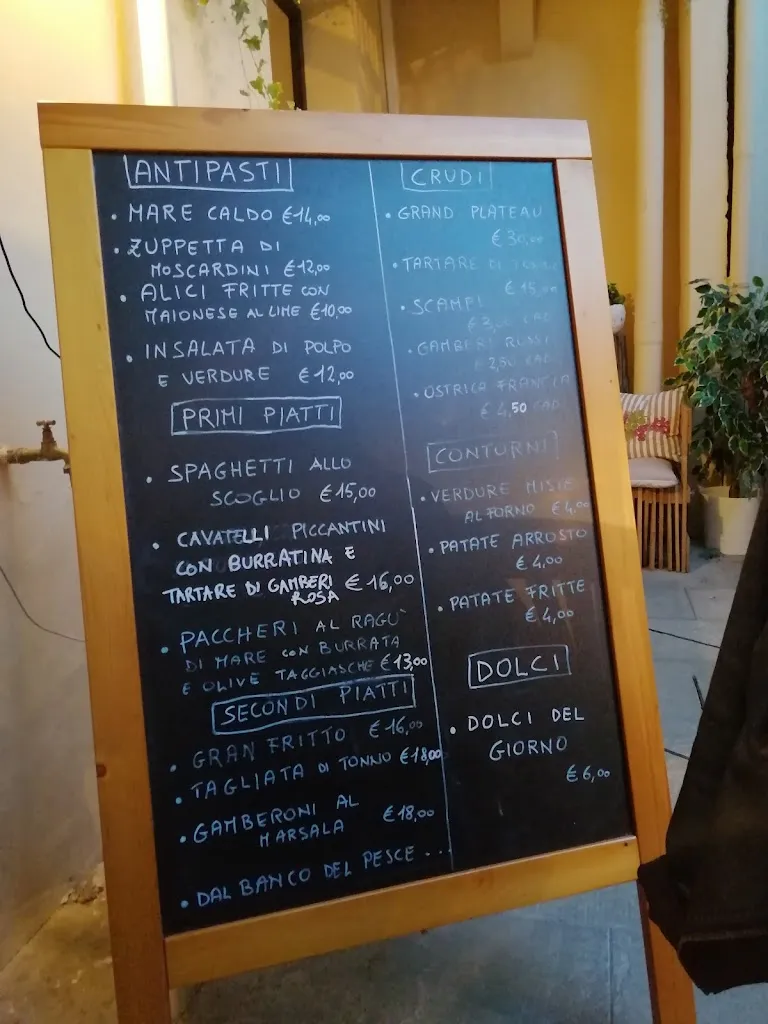 ANTIPASTI
• MARE CALDO €14,00
• ZUPPETTA DI
MOSCARDINI €12,00
• ALICI FRITTE CON
MAIONESE AL LIME €10,00
• INSALATA DI POLPO
E VERDURE €12,00
PRIMI PIATTI
• SPAGHETTI ALLO
SCOGLIO €15,00
• CAVATELLI PICCANTINI
CON BURRATINA E
TARTARE DI GAMBERI
ROSA €16,00
• PACCHERI AL RAGU'
DI MARE CON BURRATA
E OLIVE TAGGIASCHE €13,00
SECONDI PIATTI
• GRAN FRITTO €16,00
• TAGLIATA DI TONNO €18,00
• GAMBERONI AL
MARSALA €18,00
• DAL BANCO DEL PESCE ...
CRUDI
• GRAND PLATEAU
€30,00
• TARTARE DI
€15,00
• SCAMPI
CAD
• GAMBERI ROSSI
€2,50 CAD
• OSTRICA FRANCIA
€4,50 CAD
CONTORNI
• VERDURE MISTE
AL FORNO €4,00
• PATATE ARROSTO
€4,00
• PATATE FRITTE
€4,00
DOLCI
• DOLCI DEL
GIORNO
€6,00